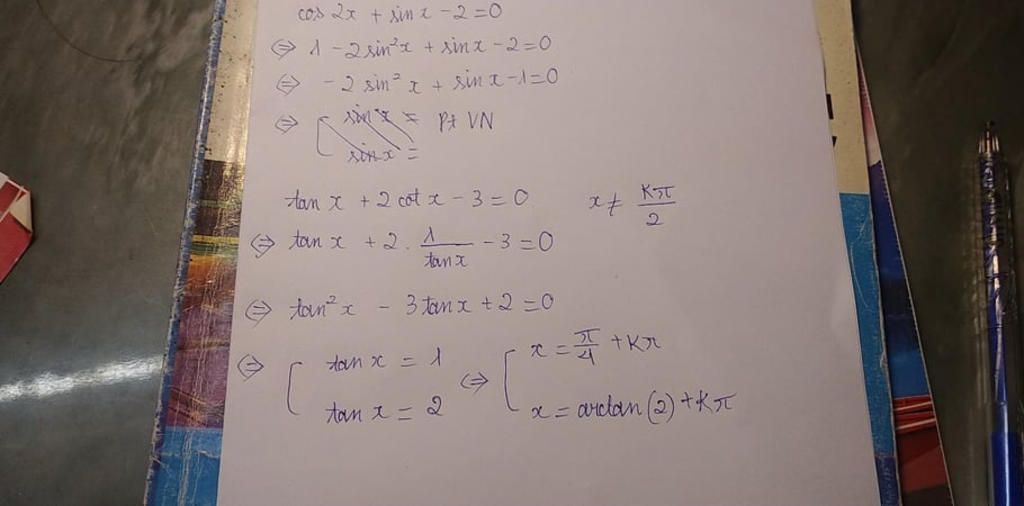 cos 2x + sin x - 2 = 0
⇔ 1 - 2 sin²x + sin x - 2 = 0
⇔ - 2 sin² x + sin x - 1 = 0
⇔ [ sin x = Pt VN
sin x =
tan x + 2 cot x - 3 = 0 x ≠ kπ/2
⇔ tan x + 2 . 1/tan x - 3 = 0
⇔ tan² x - 3 tan x + 2 = 0
⇔ [ tan x = 1 ⇔ [ x = π/4 + kπ
tan x = 2 x = arctan (2) + kπ